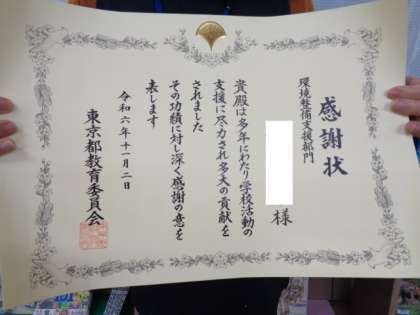 感謝状
環境整備支援部門
様
貴殿は多年にわたり学校活動の
支援に尽力され多大の貢献を
されました
その功績に対し深く感謝の意を
表します
令和六年十一月二日
東京都教育委員会